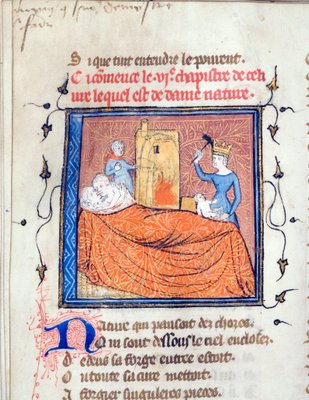 Si que tuit entendre le peurent.
Ci co͂mence le .vi͂e. chapistre de cest
liure lequel est de dame nature.
Nature qui pansoit des choses
Qui sont dessous le ciel encloses
Dedens sa forge entree estoit.
Ou toute sa cure mettoit
A forgier singulieres pieces.